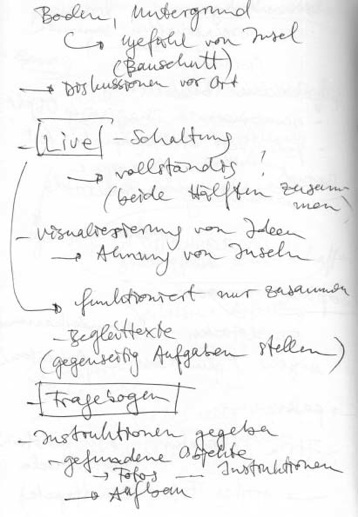 Boden, Untergrund
↳ Gefühl von Insel
(Bauschutt)
→ Diskussionen vor Ort
- Live - Schaltung
→ vollständig!
(beide Hälften zusam-
men)
- Visualisierung von Ideen
→ Ahnung von Inseln
→ funktioniert nur zusammen
- Begleittexte
(gegenseitig Aufgaben stellen)
- Fragebogen
- Instruktionen gegeben
- gefundene Objekte
→ Fotos — Instruktionen
→ Aufbau